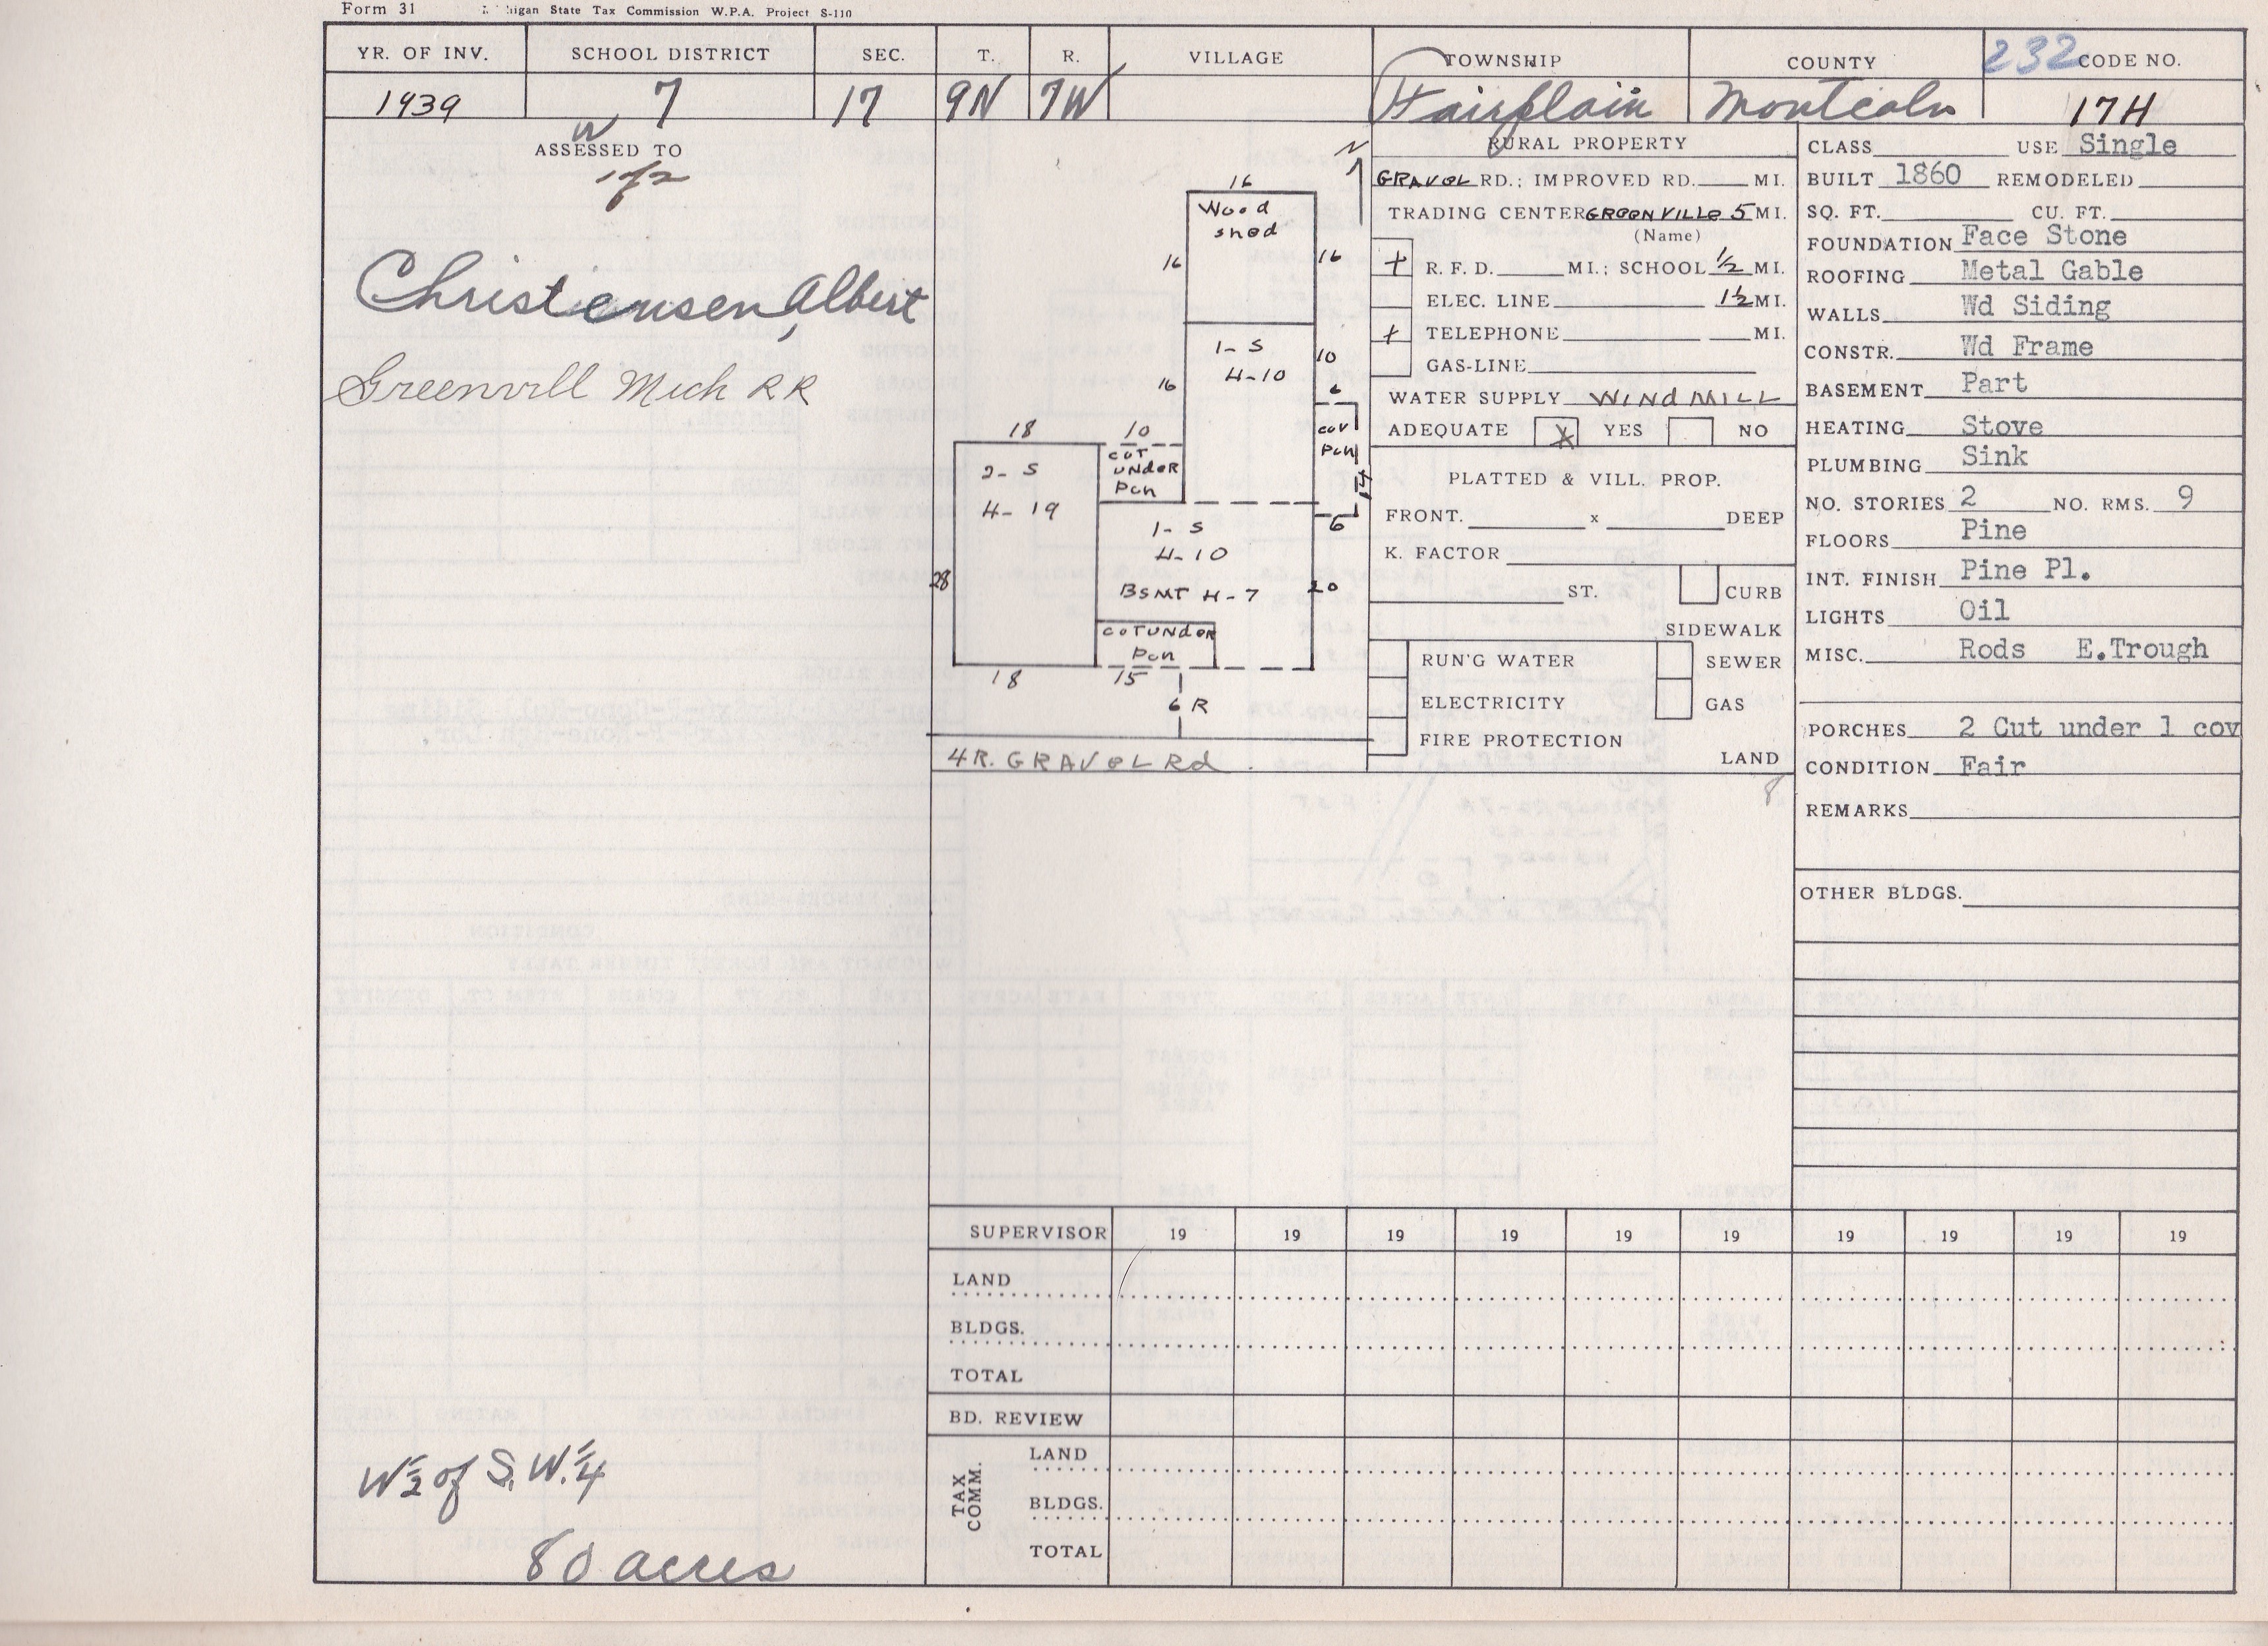 Form 31 higan State Tax Commission W.P.A. Project S-110
YR. OF INV. SCHOOL DISTRICT SEC. T. R. VILLAGE TOWNSHIP COUNTY 232 CODE NO.
1939 7 17 9N 7W Fairplain Montcalm 17H
W
ASSESSED TO
1 of 2
Christensen, Albert
Greenvill Mich RR
W 1/2 of S.W. 1/4
80 acres
N
16
Wood
shed
16 16
1-S
H-10
16
10
6
cov
Pch
14
6
18
2-S
H-19
28
18
10
cut
under
Pch
1-S
H-10
BSMT H-7
20
cut under
Pch
15
6 R
4R. GRAVEL Rd.
RURAL PROPERTY
GRAVEL RD.; IMPROVED RD. MI.
TRADING CENTER GREENVILLE 5 MI.
(Name)
+ R. F. D. MI.; SCHOOL 1/2 MI.
ELEC. LINE 1 1/2 MI.
+ TELEPHONE MI.
GAS-LINE
WATER SUPPLY WINDMILL
ADEQUATE X YES NO
PLATTED & VILL. PROP.
FRONT. x DEEP
K. FACTOR
ST. CURB
SIDEWALK
RUN'G WATER SEWER
ELECTRICITY GAS
FIRE PROTECTION
LAND
8
CLASS USE Single
BUILT 1860 REMODELED
SQ. FT. CU. FT.
FOUNDATION Face Stone
ROOFING Metal Gable
WALLS Wd Siding
CONSTR. Wd Frame
BASEMENT Part
HEATING Stove
PLUMBING Sink
NO. STORIES 2 NO. RMS. 9
FLOORS Pine
INT. FINISH Pine Pl.
LIGHTS Oil
MISC. Rods E.Trough
PORCHES 2 Cut under 1 cov
CONDITION Fair
REMARKS
OTHER BLDGS.
SUPERVISOR 19 19 19 19 19 19 19 19 19 19
LAND
BLDGS.
TOTAL
BD. REVIEW
TAX COMM.
LAND
BLDGS.
TOTAL